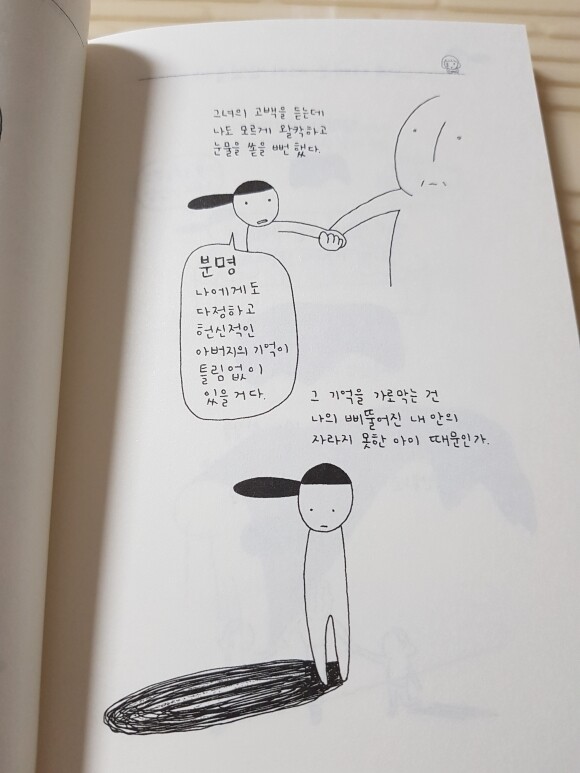 그녀의 고백을 듣는데
나도 모르게 왈칵하고
눈물을 쏟을 뻔 했다.
분명
나에게도
다정하고
헌신적인
아버지의 기억이
틀림없이
있을 거다.
그 기억을 가로막는 건
나의 삐뚤어진 내 안의
자라지 못한 아이 때문인가.